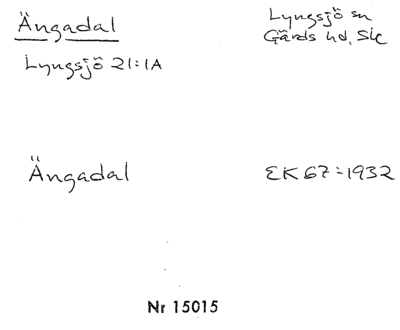 Ängadal
Lyngsjö sn
Gärds hd, Sk
Lyngsjö 21:1A
Ängadal
EK 67:1932
Nr 15015